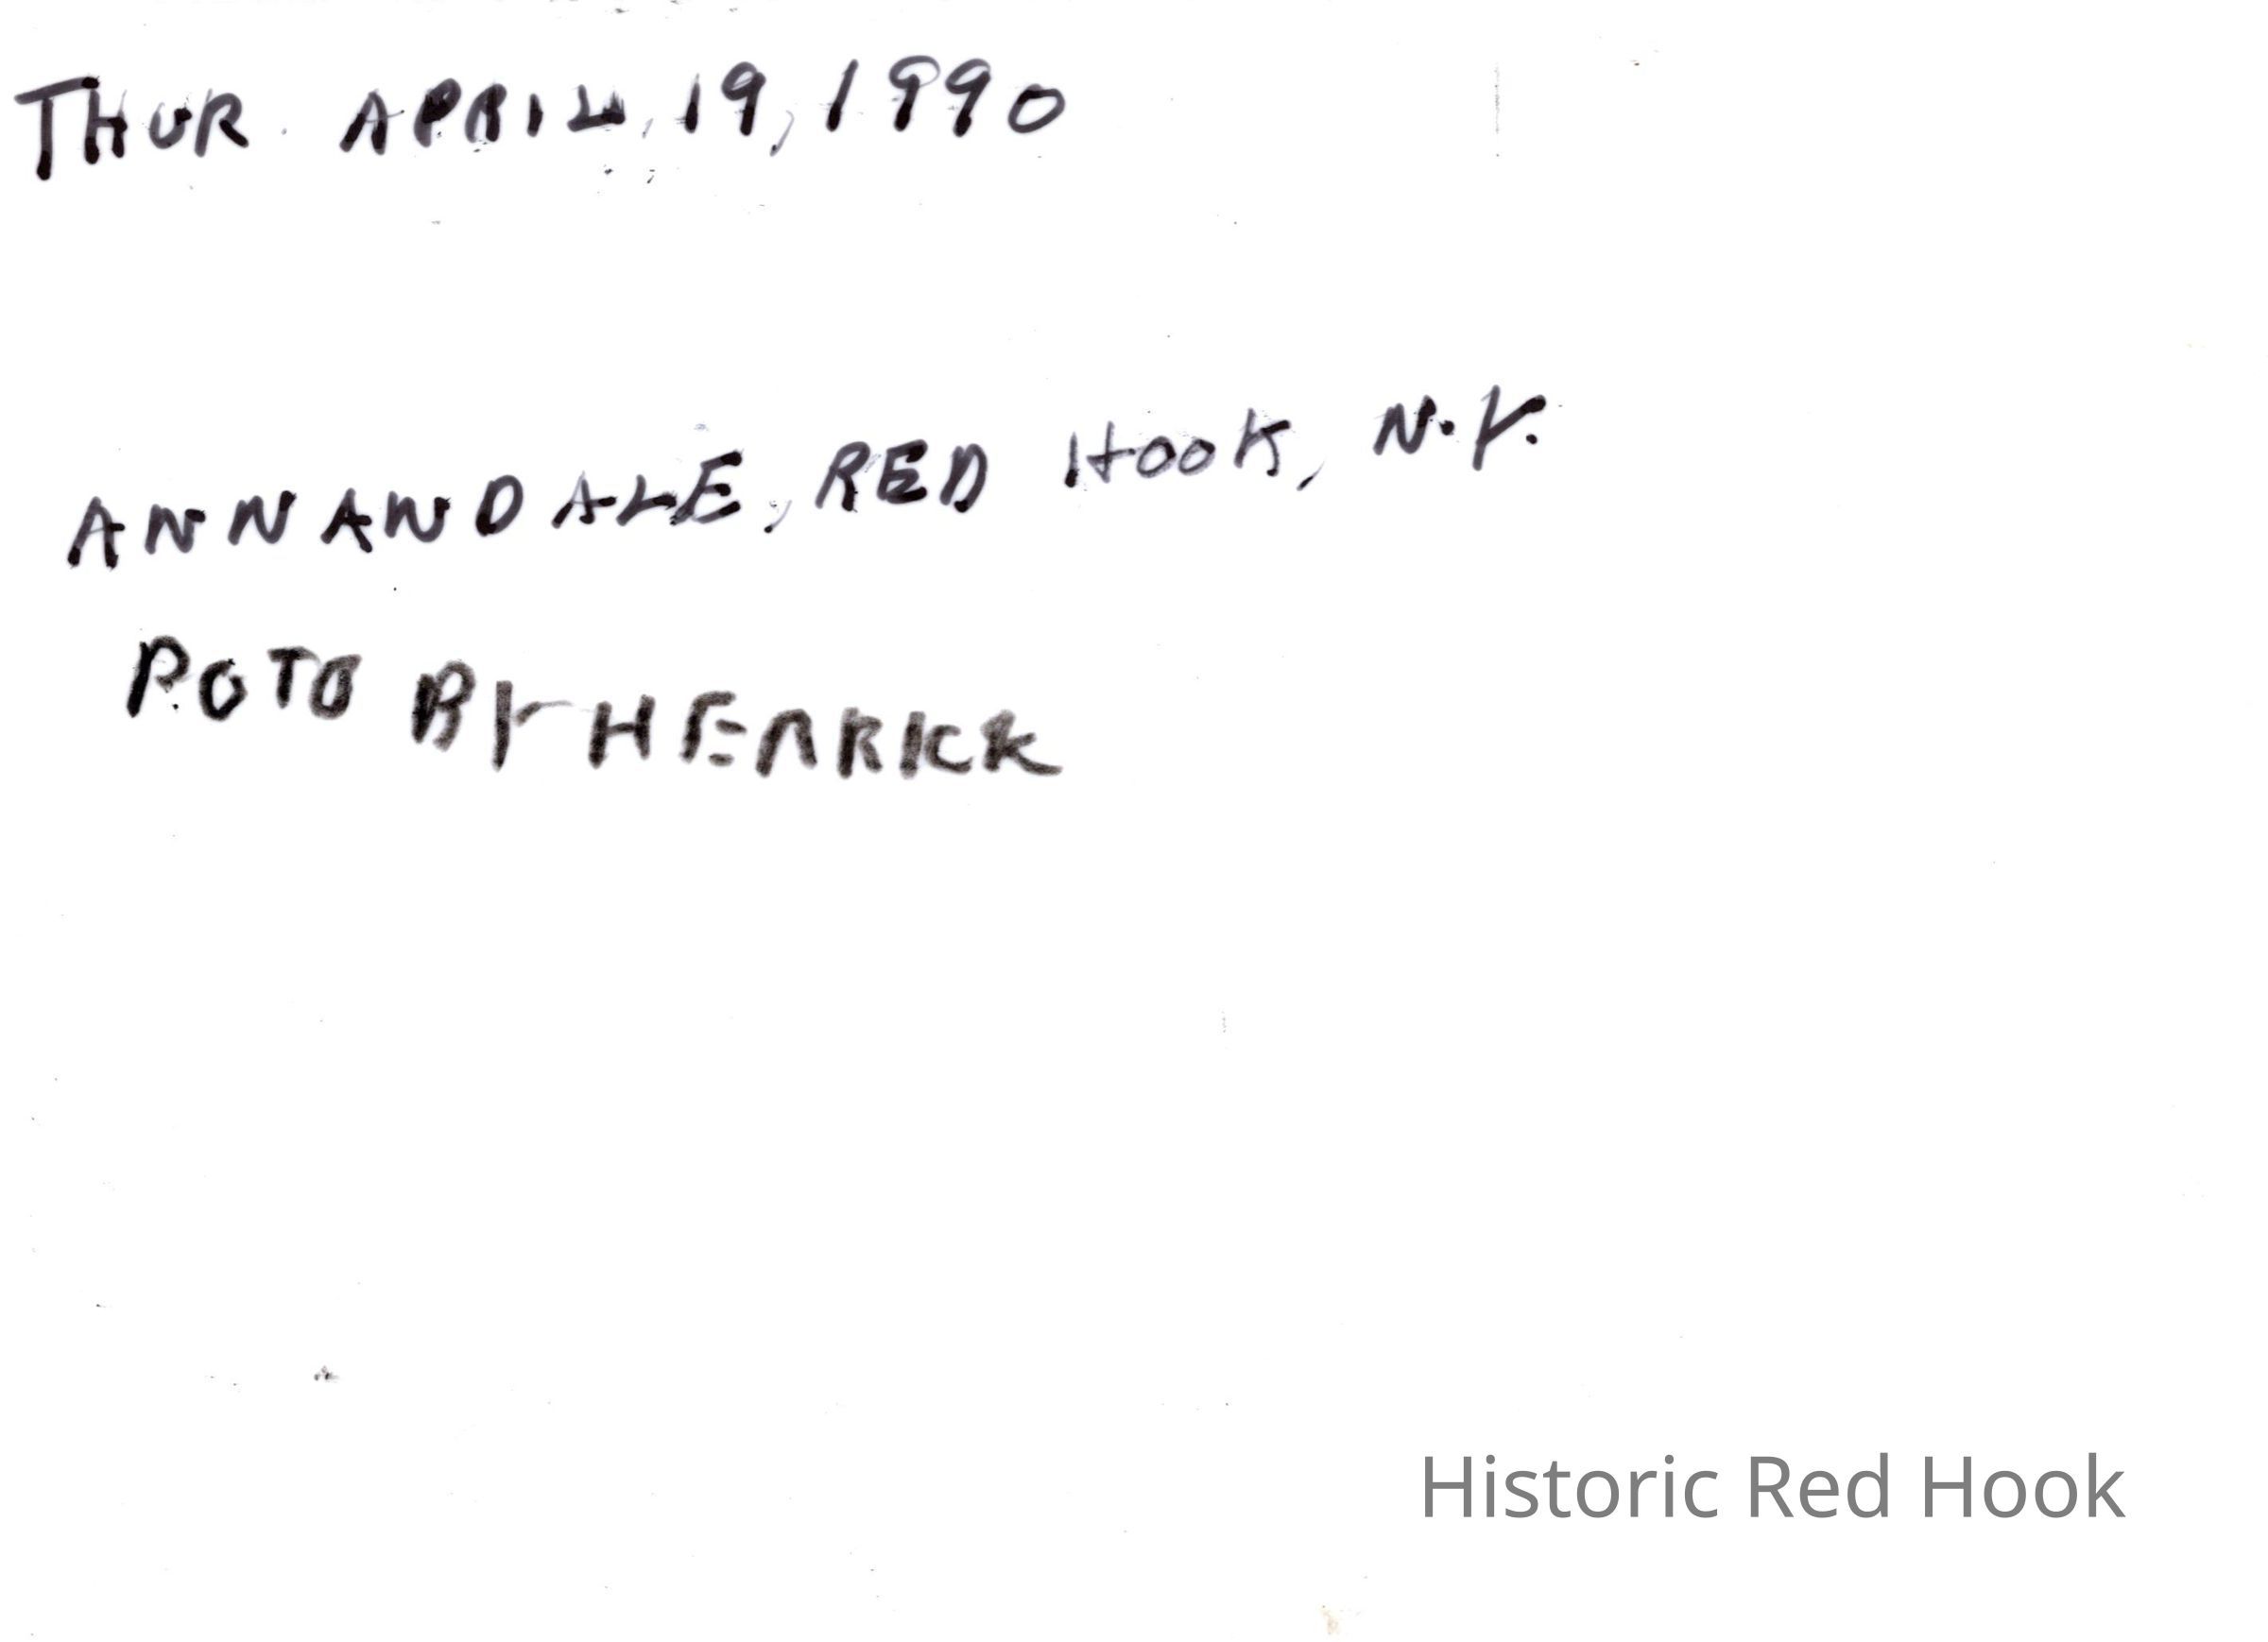 THUR. APRIL, 19, 1990
ANNANDALE, RED HOOK, N.Y.
POTO BY HERRICK
Historic Red Hook